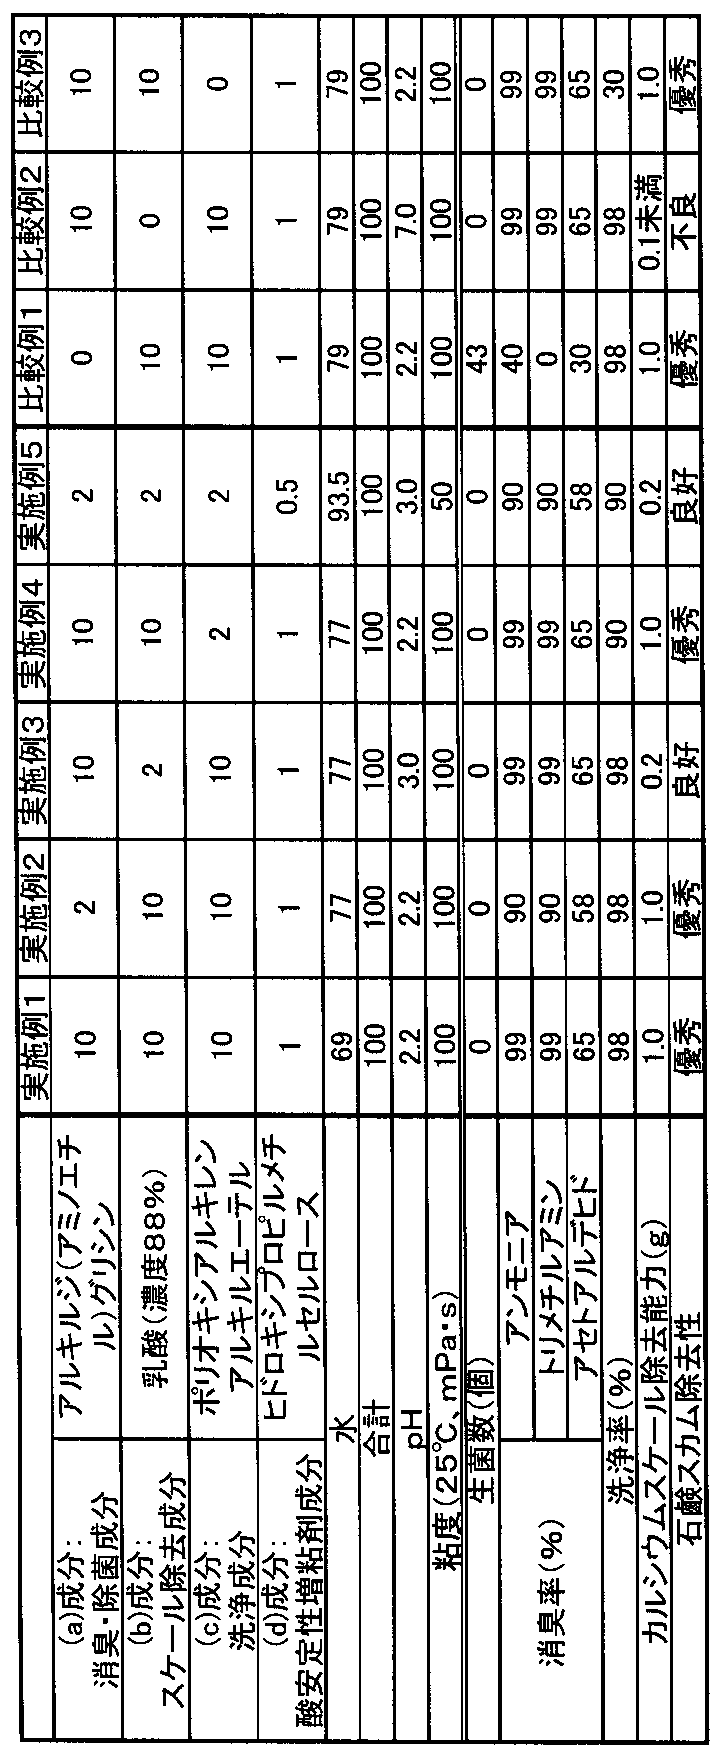 実施例1 実施例2 実施例3 実施例4 実施例5 比較例1 比較例2 比較例3
(a)成分：
消臭・除菌成分
アルキルジ(アミノエチ
ル)グリシン
10 2 10 10 2 0 10 10
(b)成分：
スケール除去成分
乳酸(濃度88%)
10 10 2 10 2 10 0 10
(c)成分：
洗浄成分
ポリオキシアルキレン
アルキルエーテル
10 10 10 2 2 10 10 0
(d)成分：
酸安定性増粘剤成分
ヒドロキシプロピルメチ
ルセルロース
1 1 1 1 0.5 1 1 1
水 69 77 77 77 93.5 79 79 79
合計 100 100 100 100 100 100 100 100
pH 2.2 2.2 3.0 2.2 3.0 2.2 7.0 2.2
粘度(25℃、mPa・s) 100 100 100 100 50 100 100 100
生菌数(個) 0 0 0 0 0 43 0 0
消臭率(%)
アンモニア 99 90 99 99 90 40 99 99
トリメチルアミン 99 90 99 99 90 0 99 99
アセトアルデヒド 65 58 65 65 58 30 65 65
洗浄率(%) 98 98 98 90 90 98 98 30
カルシウムスケール除去能力(g) 1.0 1.0 0.2 1.0 0.2 1.0 0.1未満 1.0
石鹸スカム除去性 優秀 優秀 良好 優秀 良好 優秀 不良 優秀